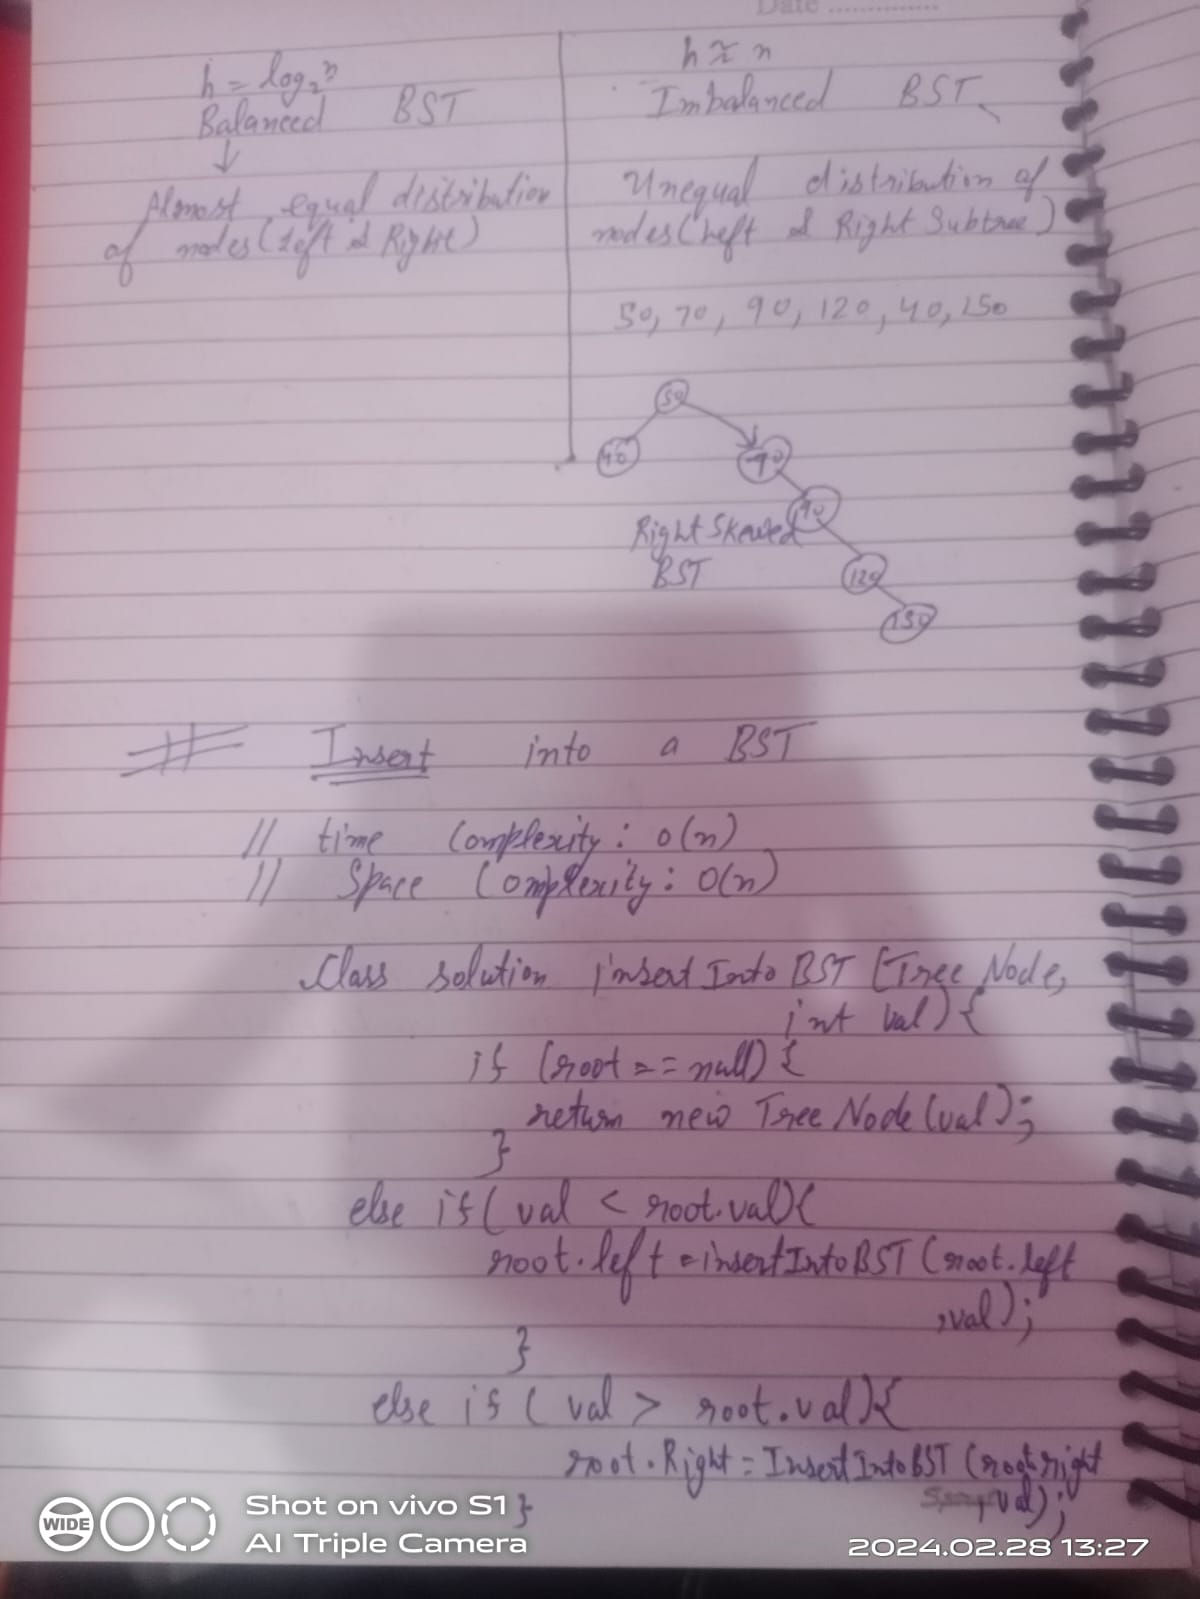 Date ..............
h = log₂n
Balanced BST
↓
Almost equal distribution
of nodes (Left & Right)
h ≈ n
Imbalanced BST
Unequal distribution of
nodes (Left & Right Subtree)
50, 70, 90, 120, 40, 150
50
40
70
90
Right Skewed
BST
120
150
# Insert into a BST
// time Complexity: O(n)
// Space Complexity: O(n)
Class solution insertIntoBST (TreeNode,
int val) {
if (root == null) {
return new TreeNode(val);
}
else if (val < root.val) {
root.left = insertIntoBST (root.left
,val);
}
else if ( val > root.val) {
root.Right = InsertIntoBST (root.right
,val);
}
WIDE
Shot on vivo S1
AI Triple Camera
2024.02.28 13:27